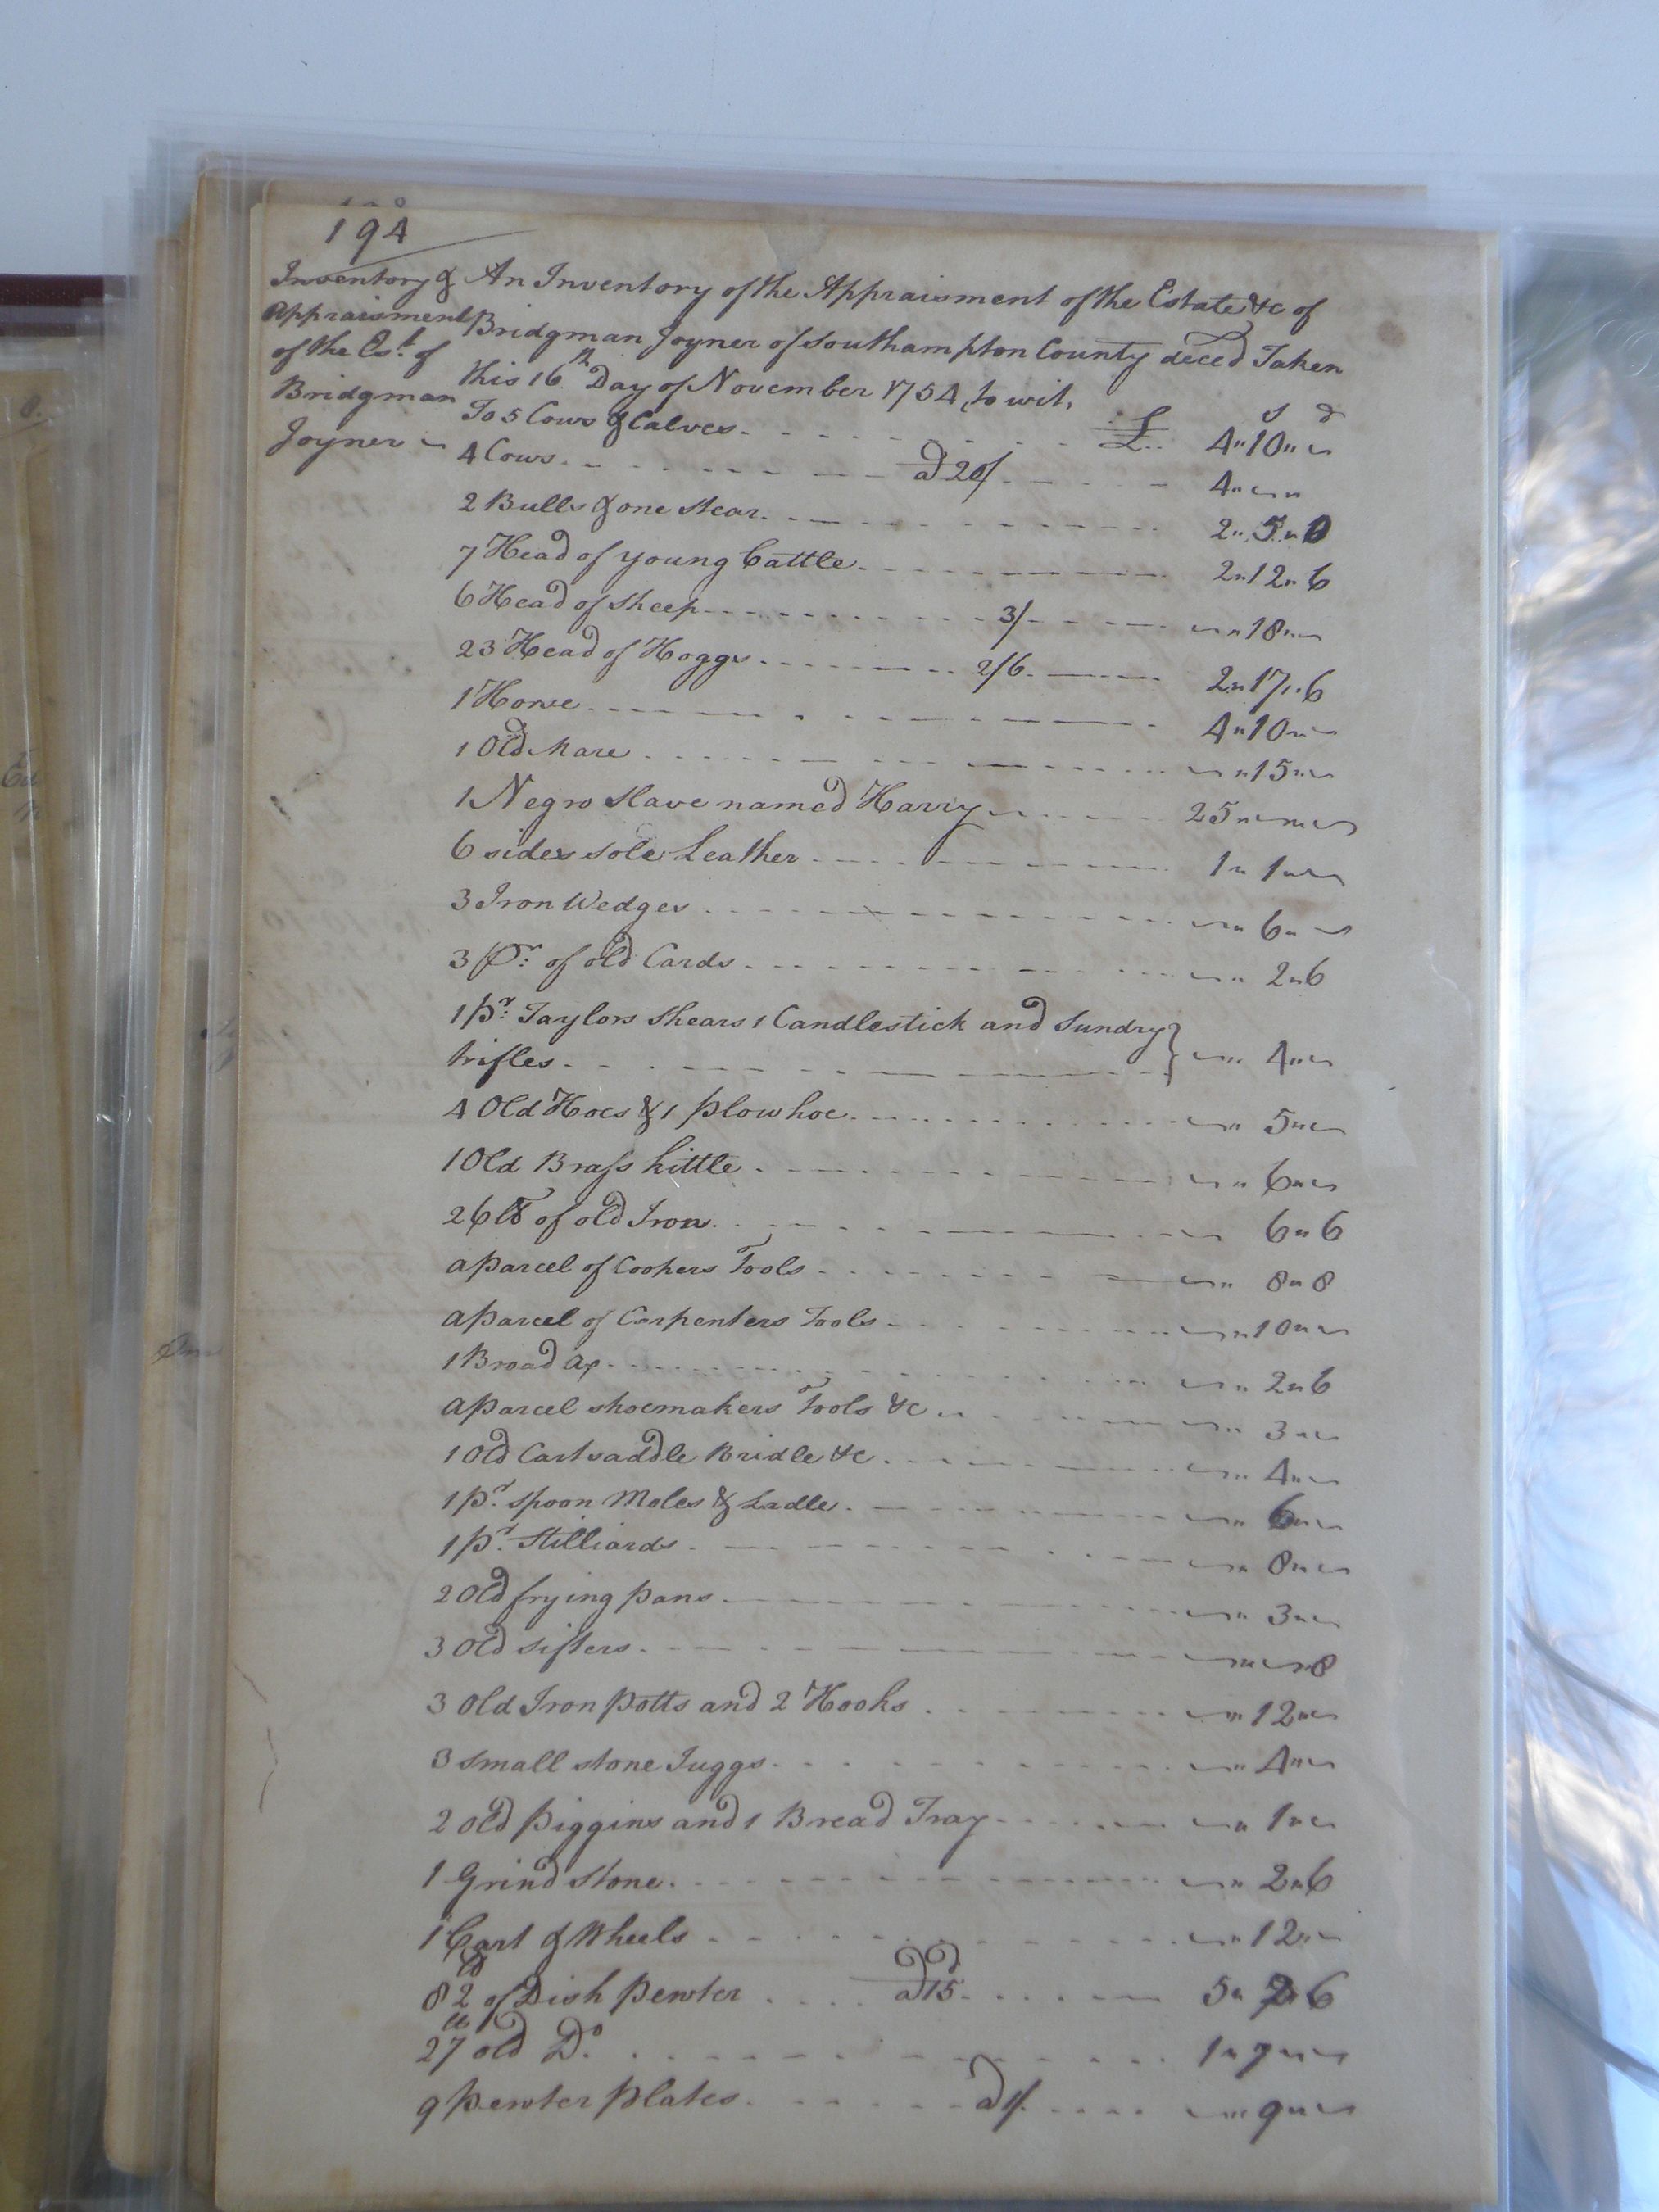 194
Inventory &
Appraisment
of the Est. of
Bridgman
Joyner
An Inventory of the Appraisment of the Estate &c of
Bridgman Joyner of Southampton County deced Taken
this 16th Day of November 1754, to wit,
£ s d
To 5 Cows & Calves £ 4 " 10 "
4 Cows a 20/ 4 "
2 Bulls & one Stear 2 " 5 " 0
7 Head of young Cattle 2 " 12 " 6
6 Head of Sheep 3/ " 18 "
23 Head of Hoggs 2/6 2 " 17 " 6
1 Horse 4 " 10 "
1 Old Mare " 15 "
1 Negro Slave named Harry 25 "
6 sides sole Leather 1 " 1 "
3 Iron Wedges " 6 "
3 Pr. of old Cards " 2 " 6
1 Pr. Taylors Shears 1 Candlestick and Sundry
trifles } " 4 "
4 Old Hoes & 1 Plow hoe " 5 "
1 Old Brass kittle " 6 "
26 lb of old Iron 6 " 6
a Parcel of Coopers Tools " 8 " 8
a Parcel of Carpenters Tools " 10 "
1 Broad ax " 2 " 6
a Parcel shoemakers Tools &c " 3 "
1 Old Cartsaddle Bridle &c " 4 "
1 Pr. spoon Moles & Ladle " 6 "
1 Pr. Stilliards " 8 "
2 Old frying Pans " 3 "
3 Old sifters " " 8
3 Old Iron Potts and 2 Hooks " 12 "
3 Small stone Juggs " 4 "
2 old Piggins and 1 Bread Tray " 1 "
1 Grind stone " 2 " 6
1 Cart & Wheels " 12 "
82 lb of Dish Pewter a 15d 5 " 2 " 6
27 lb old Do. 1 " 7 "
9 Pewter Plates a 1/ " 9 "